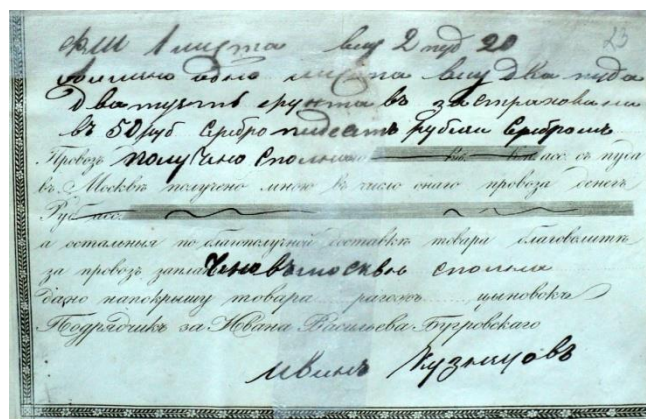 ФШ 1 миста вису 2 пуд 20 23
одно миста вису два пуда
дватцеть фунта въ застраховани
въ 50 руб Серебро пидесять рублеи Серебромъ
Провозъ получено сполна асс. съ пуда
въ Москвѣ получено мною въ число онаго провоза денегъ
Руб. асс.
а остальныя по благополучной доставкѣ товара благоволитѣ
за провозъ запла чено въ москвѣ сполна
дано напокрышу товара рагожъ цыновокъ
Подрядчикъ за Ивана Васильева Бугровскаго
Иванъ Кузнецовъ